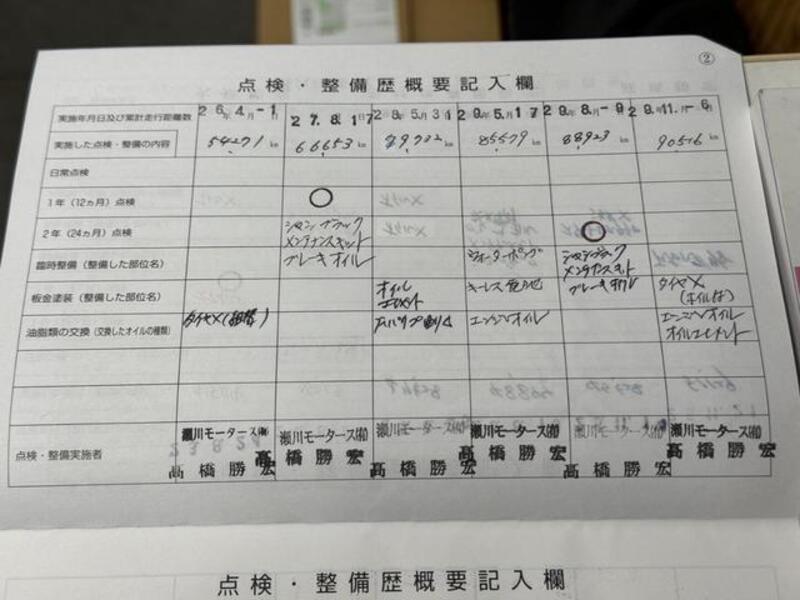 ②
点検・整備歴概要記入欄
実施年月日及び累計走行距離数
26年4月-1日
27.8.17
28年5月31
29年5月17
29年8月-9
29年11月-6日
実施した点検・整備の内容
54271 km
66653 km
79732 km
85579 km
88923 km
90516 km
日常点検
1年(12ヵ月)点検
○
2年(24ヵ月)点検
シャシブラック
メンテナンスキット
○
臨時整備(整備した部位名)
ブレーキオイル
ウォーターポンプ
シャシブラック
メンテナンスキット
板金塗装(整備した部位名)
オイル
エレメント
キーレス電池
ブレーキオイル
タイヤ×4
油脂類の交換(交換したオイルの種類)
エンジンオイル
エンジンオイル
オイルエレメント
点検・整備実施者
瀬川モータース㈲
瀬川モータース㈲
瀬川モータース㈲
瀬川モータース㈲
瀬川モータース㈲
瀬川モータース㈲
髙橋勝宏
髙橋勝宏
髙橋勝宏
髙橋勝宏
髙橋勝宏
髙橋勝宏
点検・整備歴概要記入欄